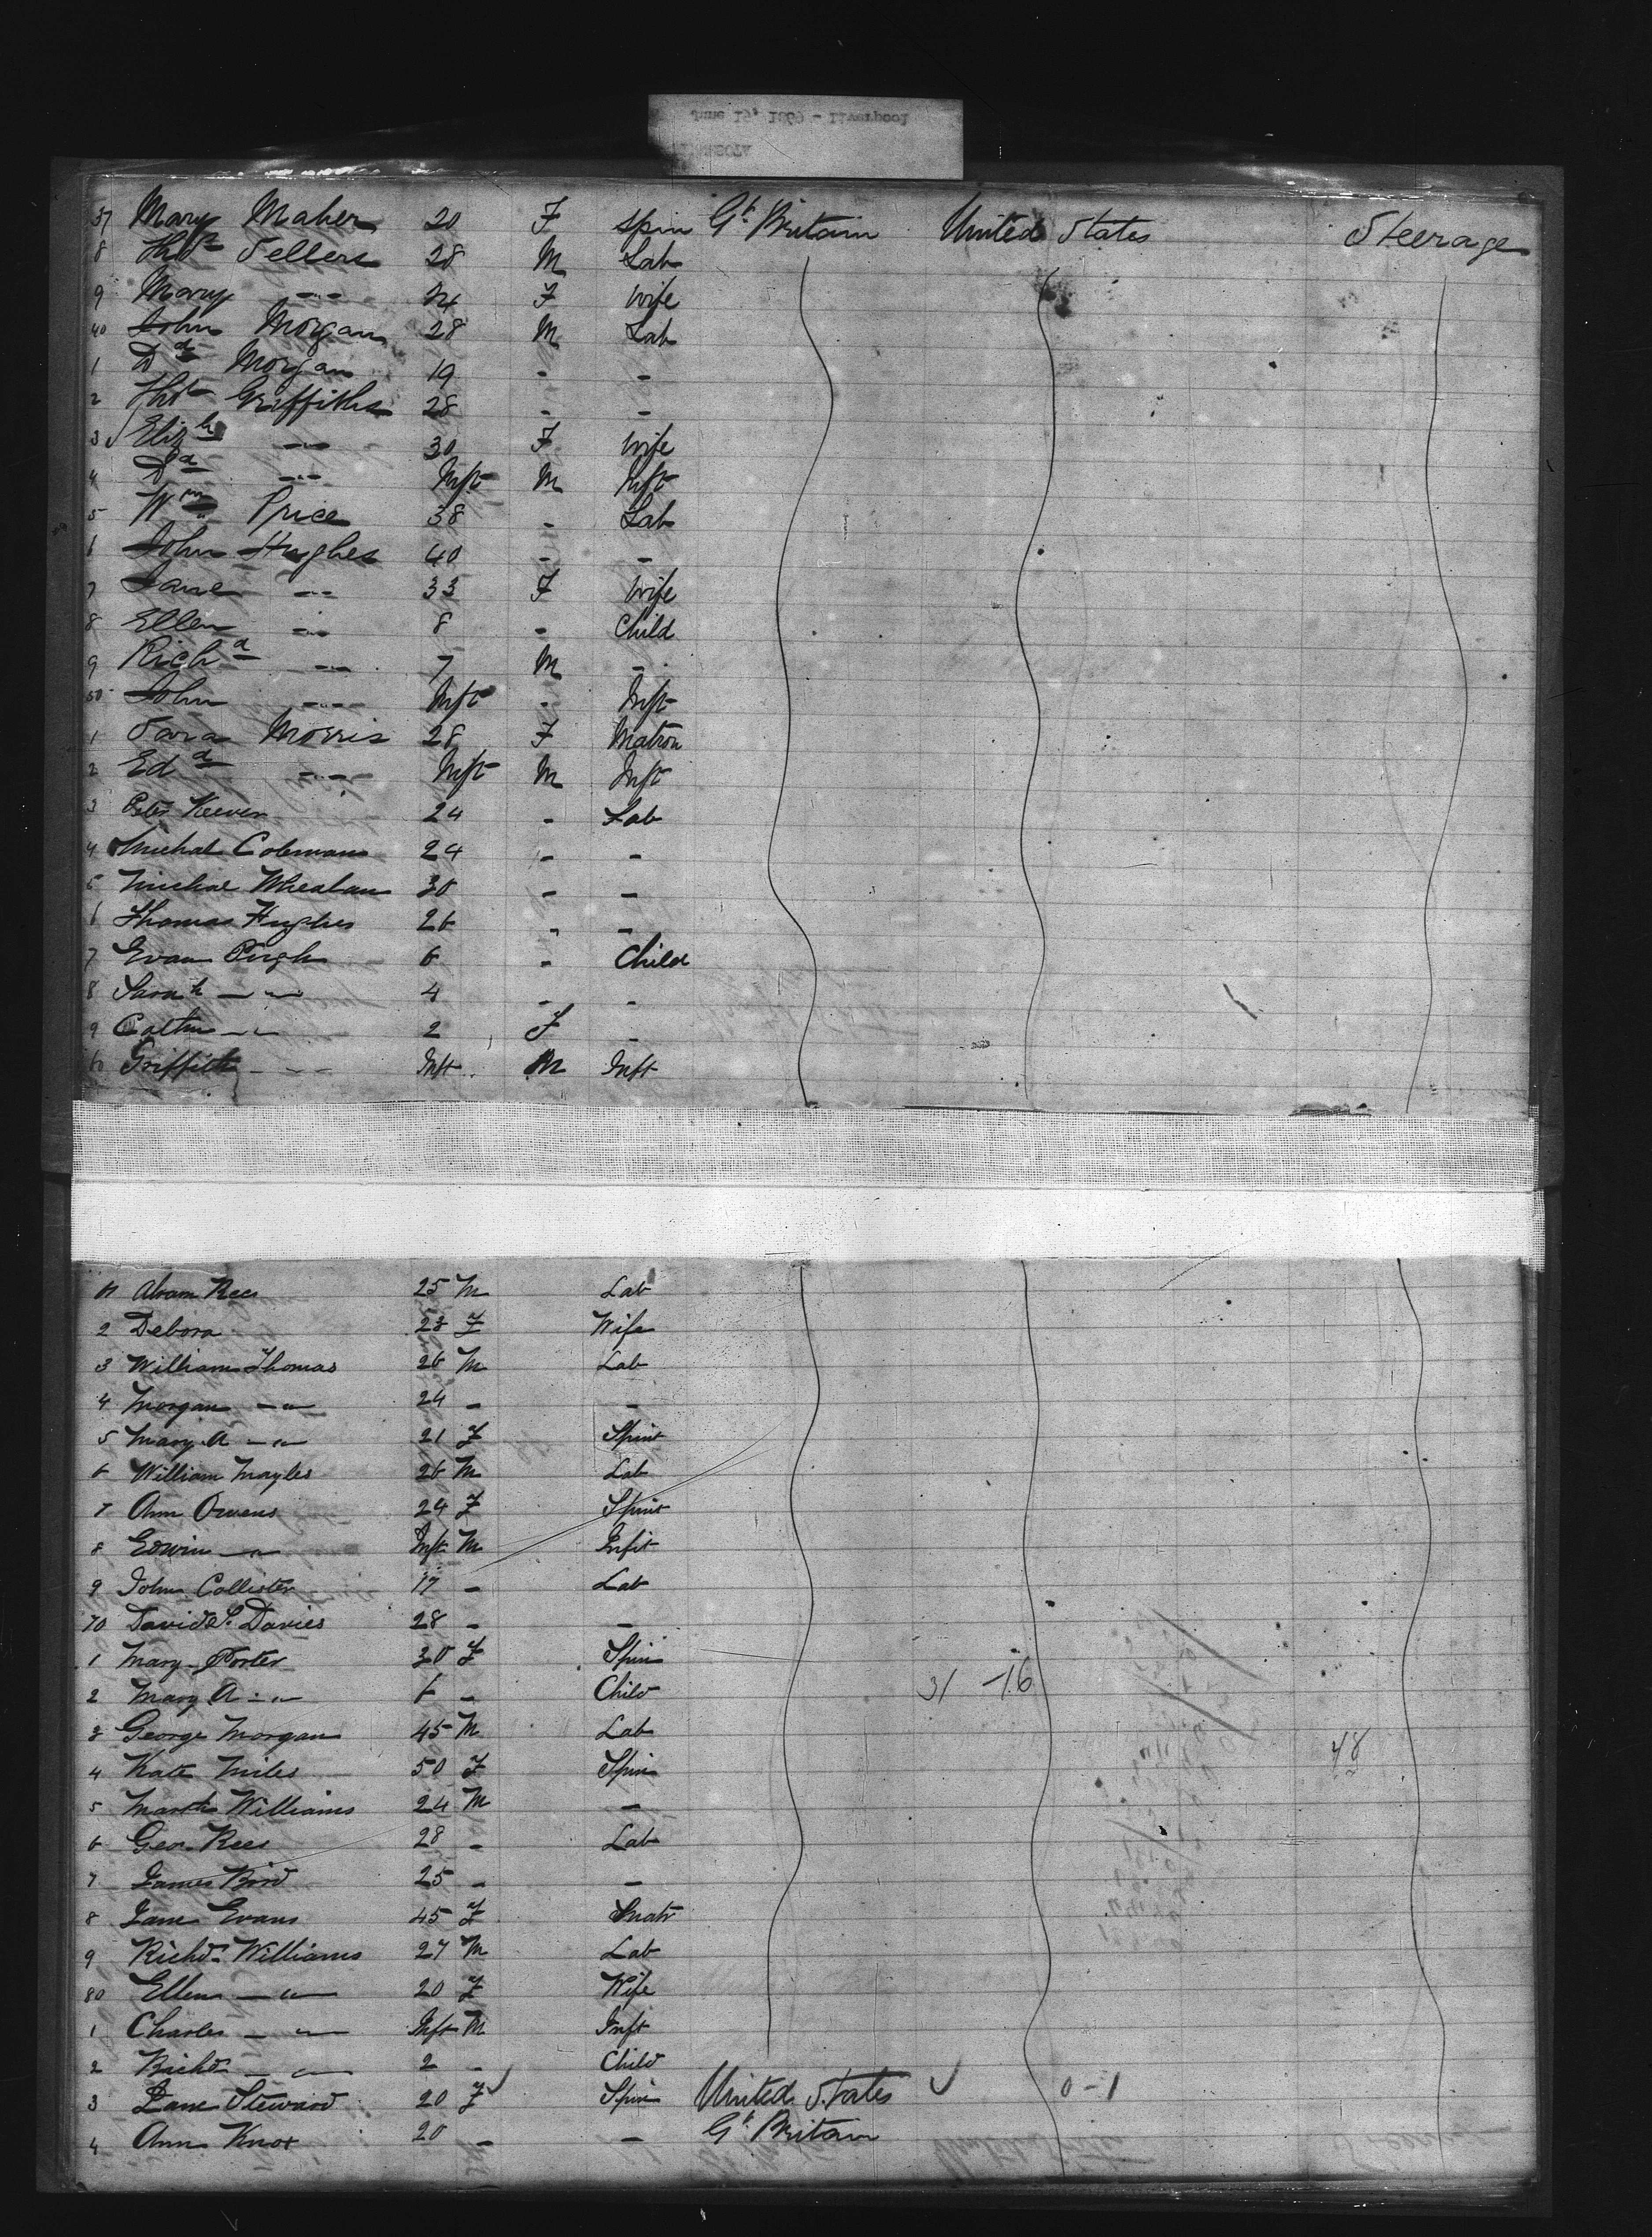 June 15, 1869 - Liverpool
37 Mary Maher 20 F Spin Gt. Britain United States Steerage
8 Thos Sellers 28 M Lab
9 Mary -"- 24 F Wife
40 John Morgan 28 M Lab
1 Dd Morgan 19 - -
2 Thos Griffiths 28 - -
3 Elizh -"- 30 F Wife
4 Dd -"- Inft M Inft
5 Wm Price 38 - Lab
6 John Hughes 40 - -
7 Jane -"- 33 F Wife
8 Ellen -"- 8 - Child
9 Richd -"- 7 M -
50 John -"- Inft - Inft
1 Sara Morris 28 F Matron
2 Edd -"- Inft M Inft
3 Peter Keever 24 - Lab
4 Michal Coleman 24 - -
5 Michae Whealan 30 - -
6 Thomas Hughes 26 - -
7 Evan Pugh 6 - Child
8 Sarah -"- 4 - -
9 -"- 2 F -
60 Griffith -"- Inft M Inft
61 Abram Rees 25 M Lab
2 Debora 23 F Wife
3 William Thomas 26 M Lab
4 Morgan -"- 24 - -
5 Mary A -"- 21 F Spint
6 William Mayles 26 M Lab
7 Ann Owens 24 F Spint
8 Edwin -"- Inft M Infit
9 John Collister 17 - Lab
70 David S. Davies 28 - -
1 Mary Porter 30 F Spin
2 Mary A -"- 6 - Child 31 -16
3 George Morgan 45 M Lab 48
4 Kate Miles 50 F Spin
5 Williams 24 M -
6 Geo. Rees 28 - Lab
7 James Bird 25 - -
8 Jane Evans 45 F Matr
9 Richd. Williams 27 M Lab
80 Ellen -"- 20 F Wife
1 Charles -"- Inft M Inft
2 Richd -"- 2 - Child
3 Jane Steward 20 F ✓ Spin United States ✓ 0-1
4 Ann Knox 20 - - Gt. Britain